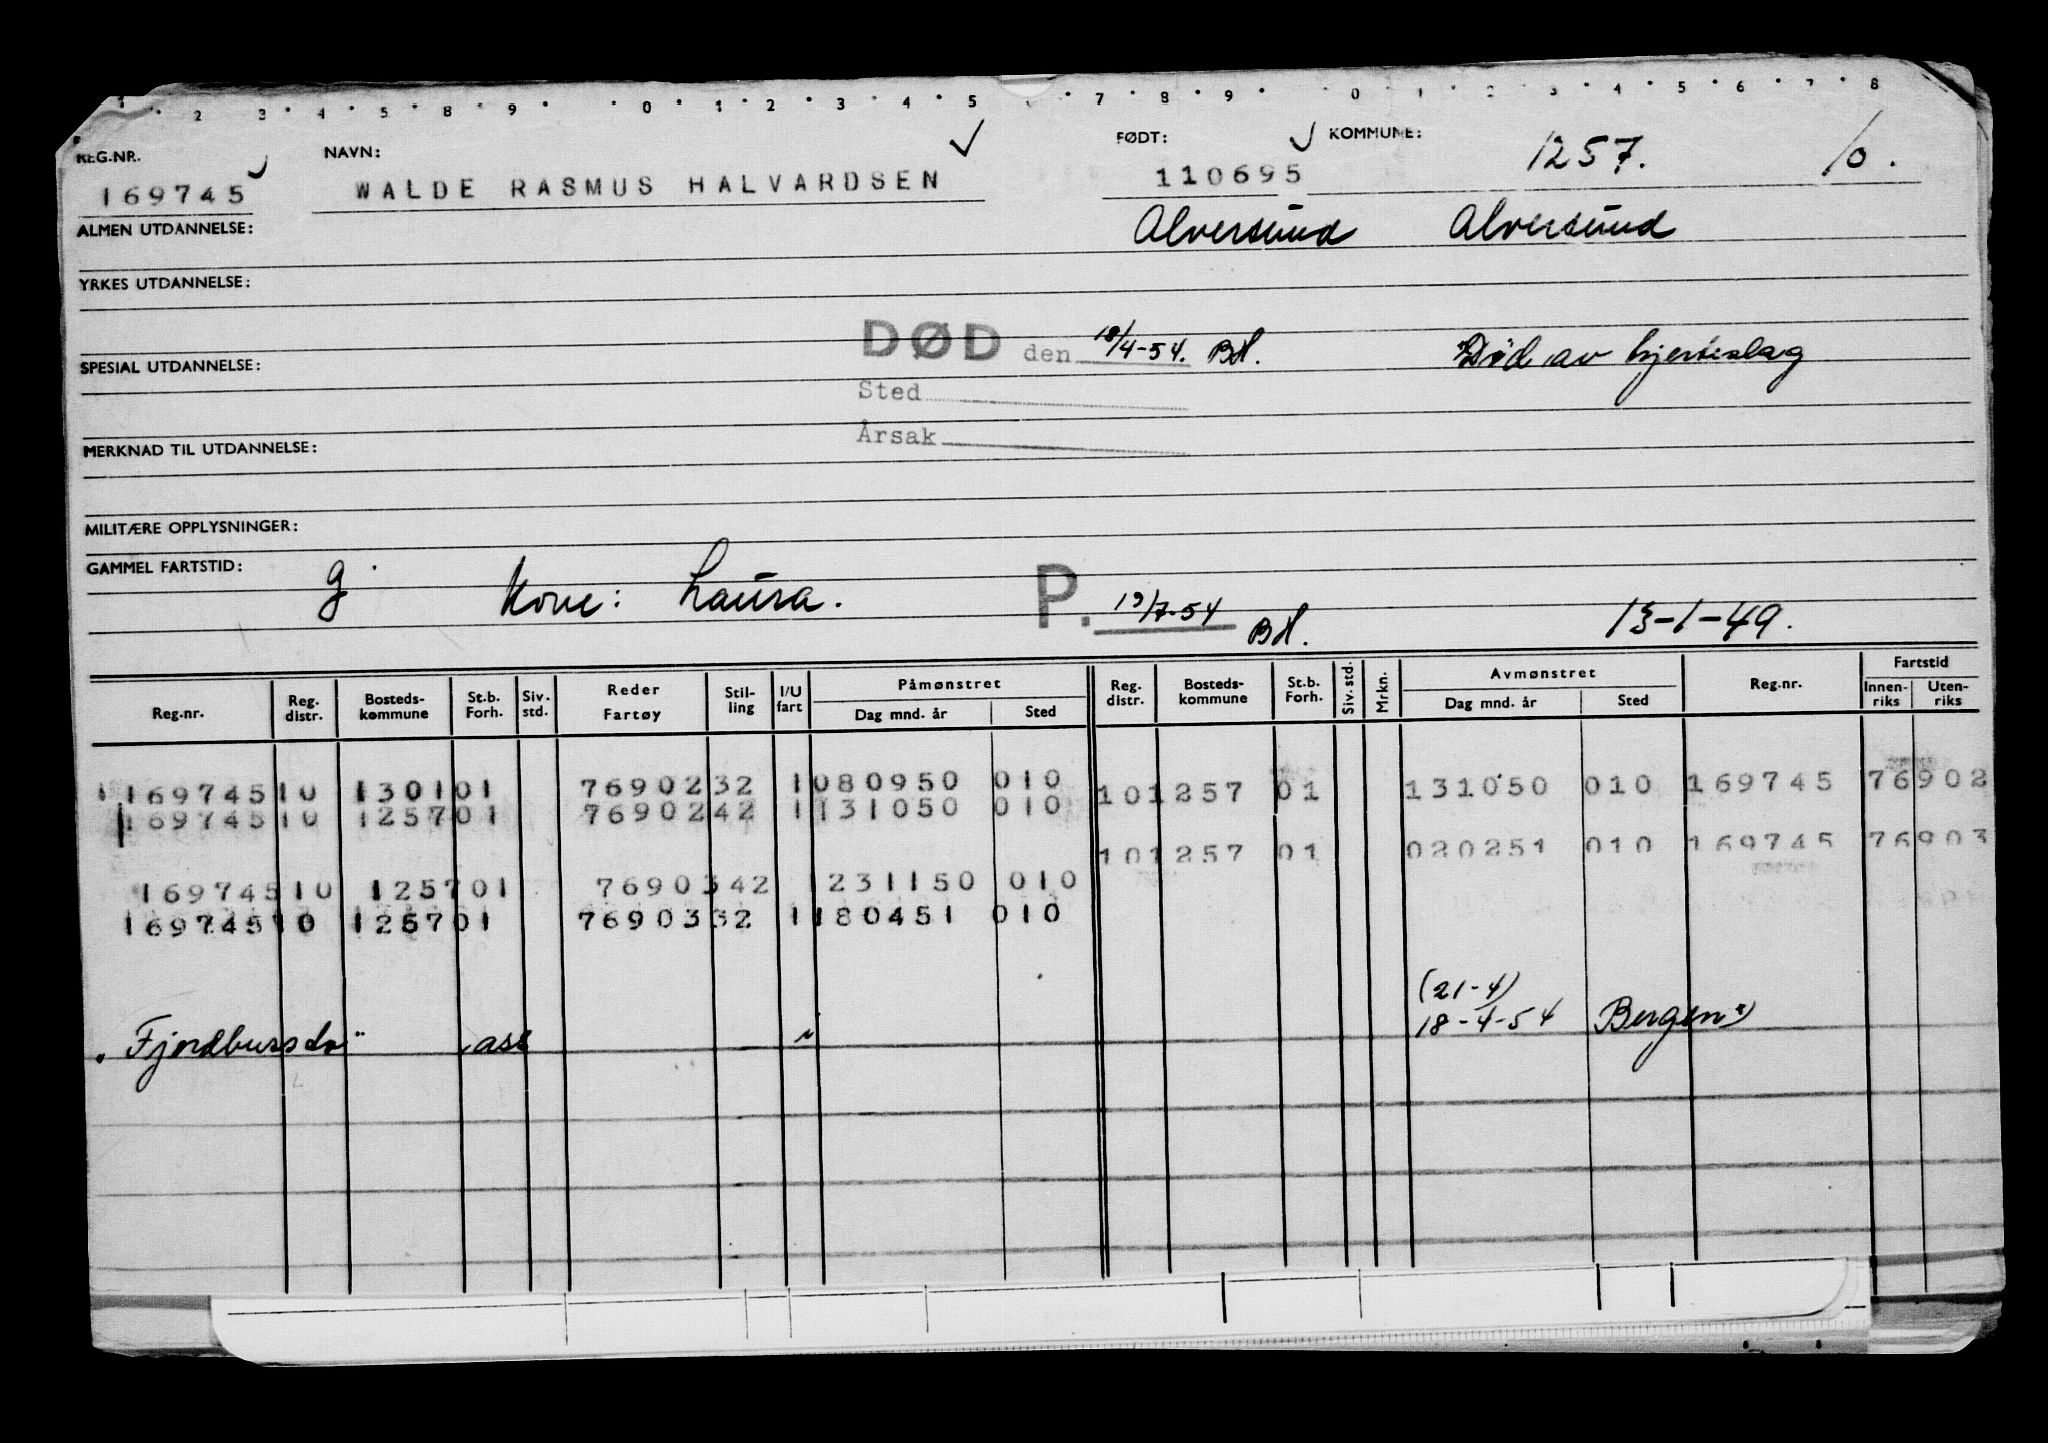 1 2 3 4 5 8 9 0 1 2 3 4 5 7 8 9 0 1 2 3 4 5 6 7 8
REG.NR. NAVN: FØDT: KOMMUNE: 1257. 10.
169745 WALDE RASMUS HALVARDSEN 110695
ALMEN UTDANNELSE: Alversund Alversund
YRKES UTDANNELSE:
DØD den 18/4-54. BH. Død av hjerteslag
SPESIAL UTDANNELSE:
Sted
Årsak
MERKNAD TIL UTDANNELSE:
MILITÆRE OPPLYSNINGER:
GAMMEL FARTSTID:
g Kone: Laura. P. 19/7-54 BH. 13-1-49.
Reg.nr. Reg. distr. Bosteds-kommune St.b. Forh. Siv. std. Reder Fartøy Stil-ling I/U fart Påmønstret Dag mnd. år Sted Reg. distr. Bosteds-kommune St.b. Forh. Siv. std. Mrkn. Avmønstret Dag mnd. år Sted Reg.nr. Fartstid Innen-riks Uten-riks
16974510 130101 7690232 1080950 010 101257 01 131050 010 169745 76902
16974510 125701 7690242 1131050 010
101257 01 020251 010 169745 76903
16974510 125701 7690342 1231150 010
16974510 125701 7690332 1180451 010
(21-4)
"Fjordbussda" ass 18-4-54 Bergen